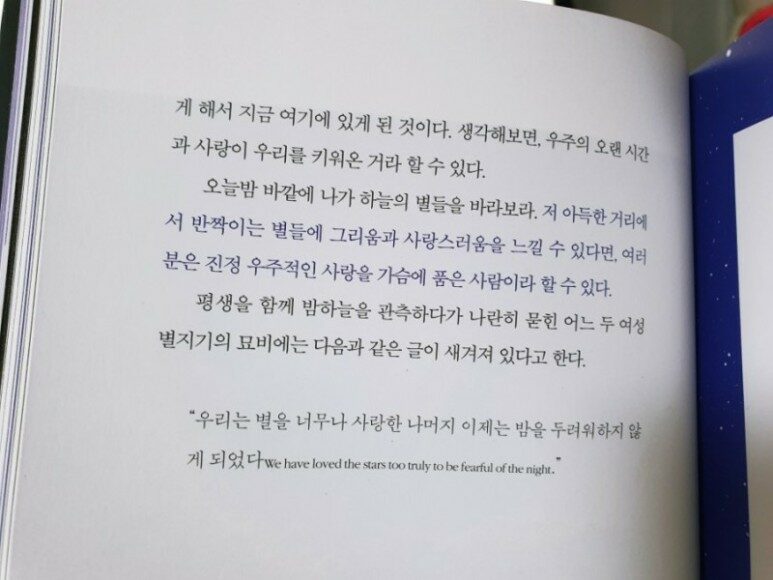 게 해서 지금 여기에 있게 된 것이다. 생각해보면, 우주의 오랜 시간
과 사랑이 우리를 키워온 거라 할 수 있다.
오늘밤 바깥에 나가 하늘의 별들을 바라보라. 저 아득한 거리에
서 반짝이는 별들에 그리움과 사랑스러움을 느낄 수 있다면, 여러
분은 진정 우주적인 사랑을 가슴에 품은 사람이라 할 수 있다.
평생을 함께 밤하늘을 관측하다가 나란히 묻힌 어느 두 여성
별지기의 묘비에는 다음과 같은 글이 새겨져 있다고 한다.
“우리는 별을 너무나 사랑한 나머지 이제는 밤을 두려워하지 않
게 되었다We have loved the stars too truly to be fearful of the night.”